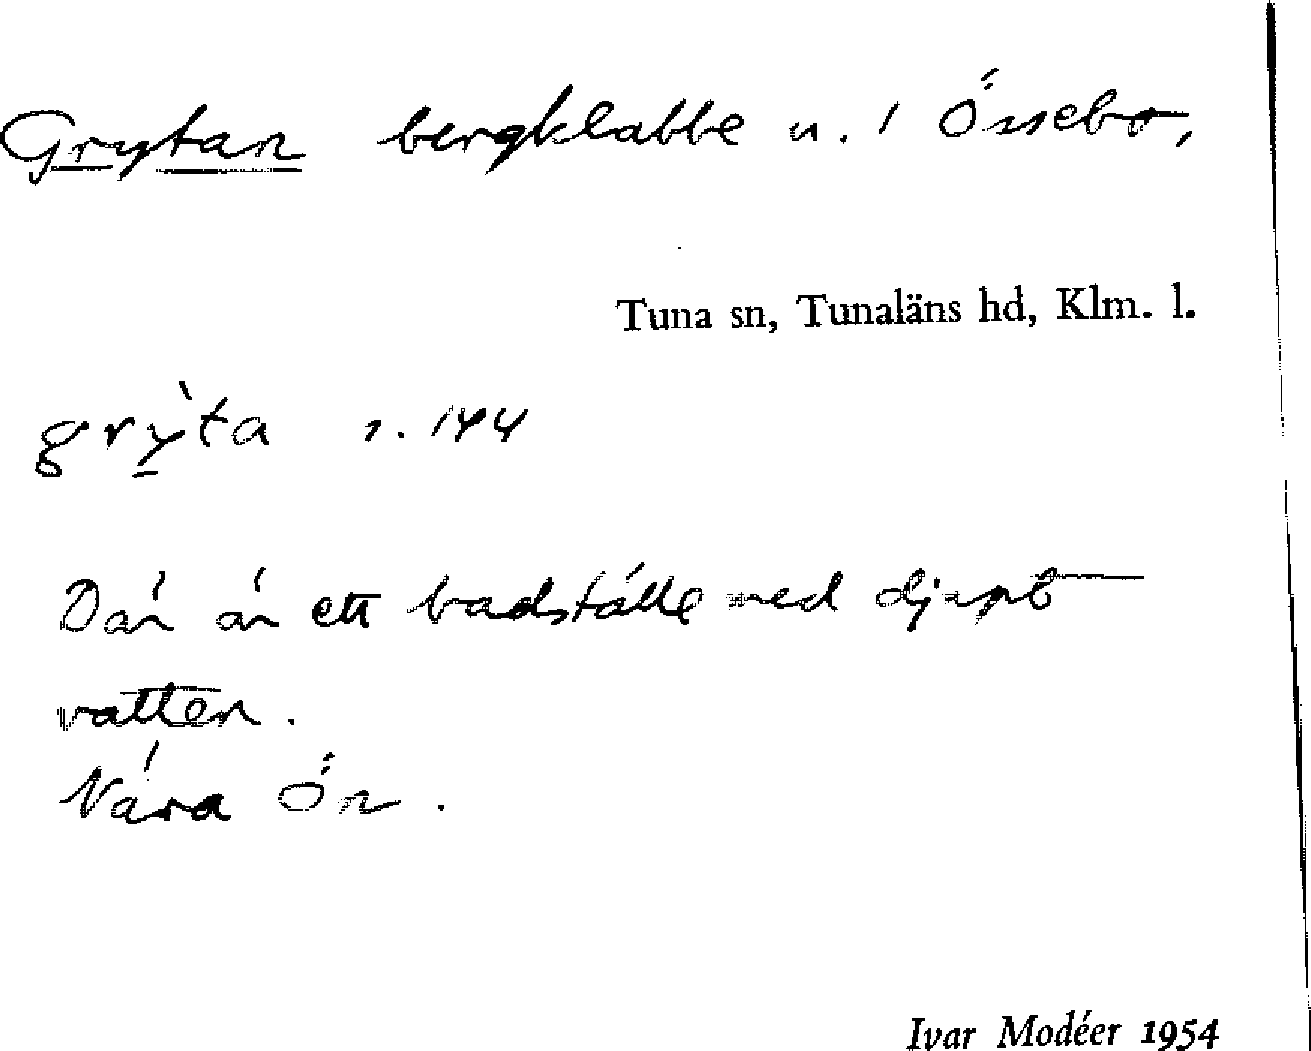 Grytan bergklabbe u. / Össebo,
Tuna sn, Tunaläns hd, Klm. l.
grỳta s. 144
Där är ett badställe med djupt
vatten.
Nära Ön.
Ivar Modéer 1954